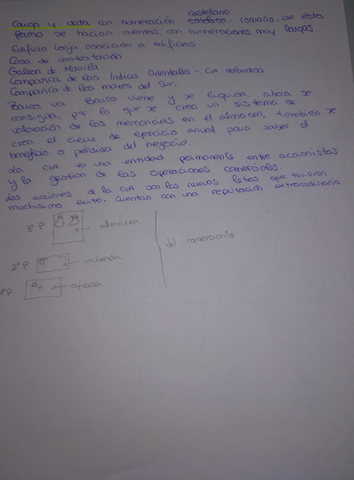 castellano
Cargo y data con numeración romano. de esta
forma se hacían cuentas con numeraciones muy largas.
Edificio Lonja asociado a edificios
Casa de contratación
Galeón de Manila
Compañía de las Indias Orientales - CIA holandesa
Compañía de los mares del Sur.
Barco va Barco viene y se liquida, ahora se
consigna, por lo que se crea un sistema de
valoración de las mercancías en el almacen, también se
crea el cierre de ejercicio anual para saber el
beneficio o perdida del negocio.
La CIA es una entidad permanente entre accionistas
y la gestion de las operaciones comerciales.
Las acciones de la CIA son los nuevos que tuvieron
muchisimo exito. cuentan con una reputación extraordinaria
3º P almacen
2º P vivienda
1º P oficina
del comerciante